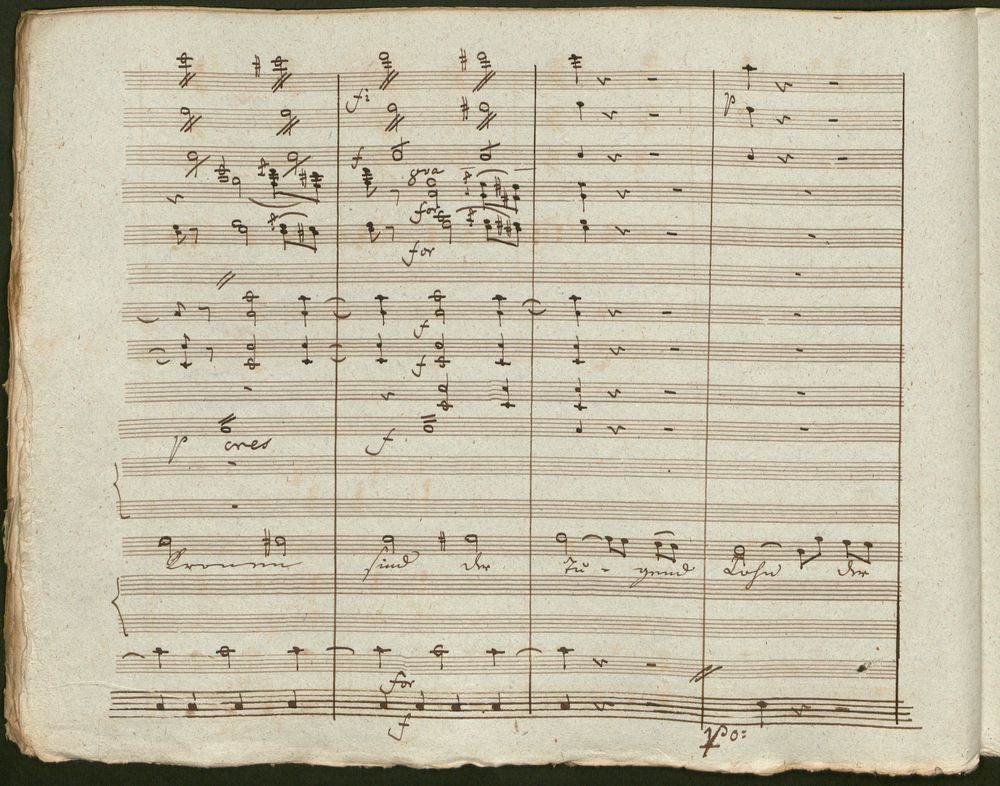 f:
p
f
8va
for
for
f
f
p cres f
Kronen sind der Tu - gend Lohn der
for
f
po: